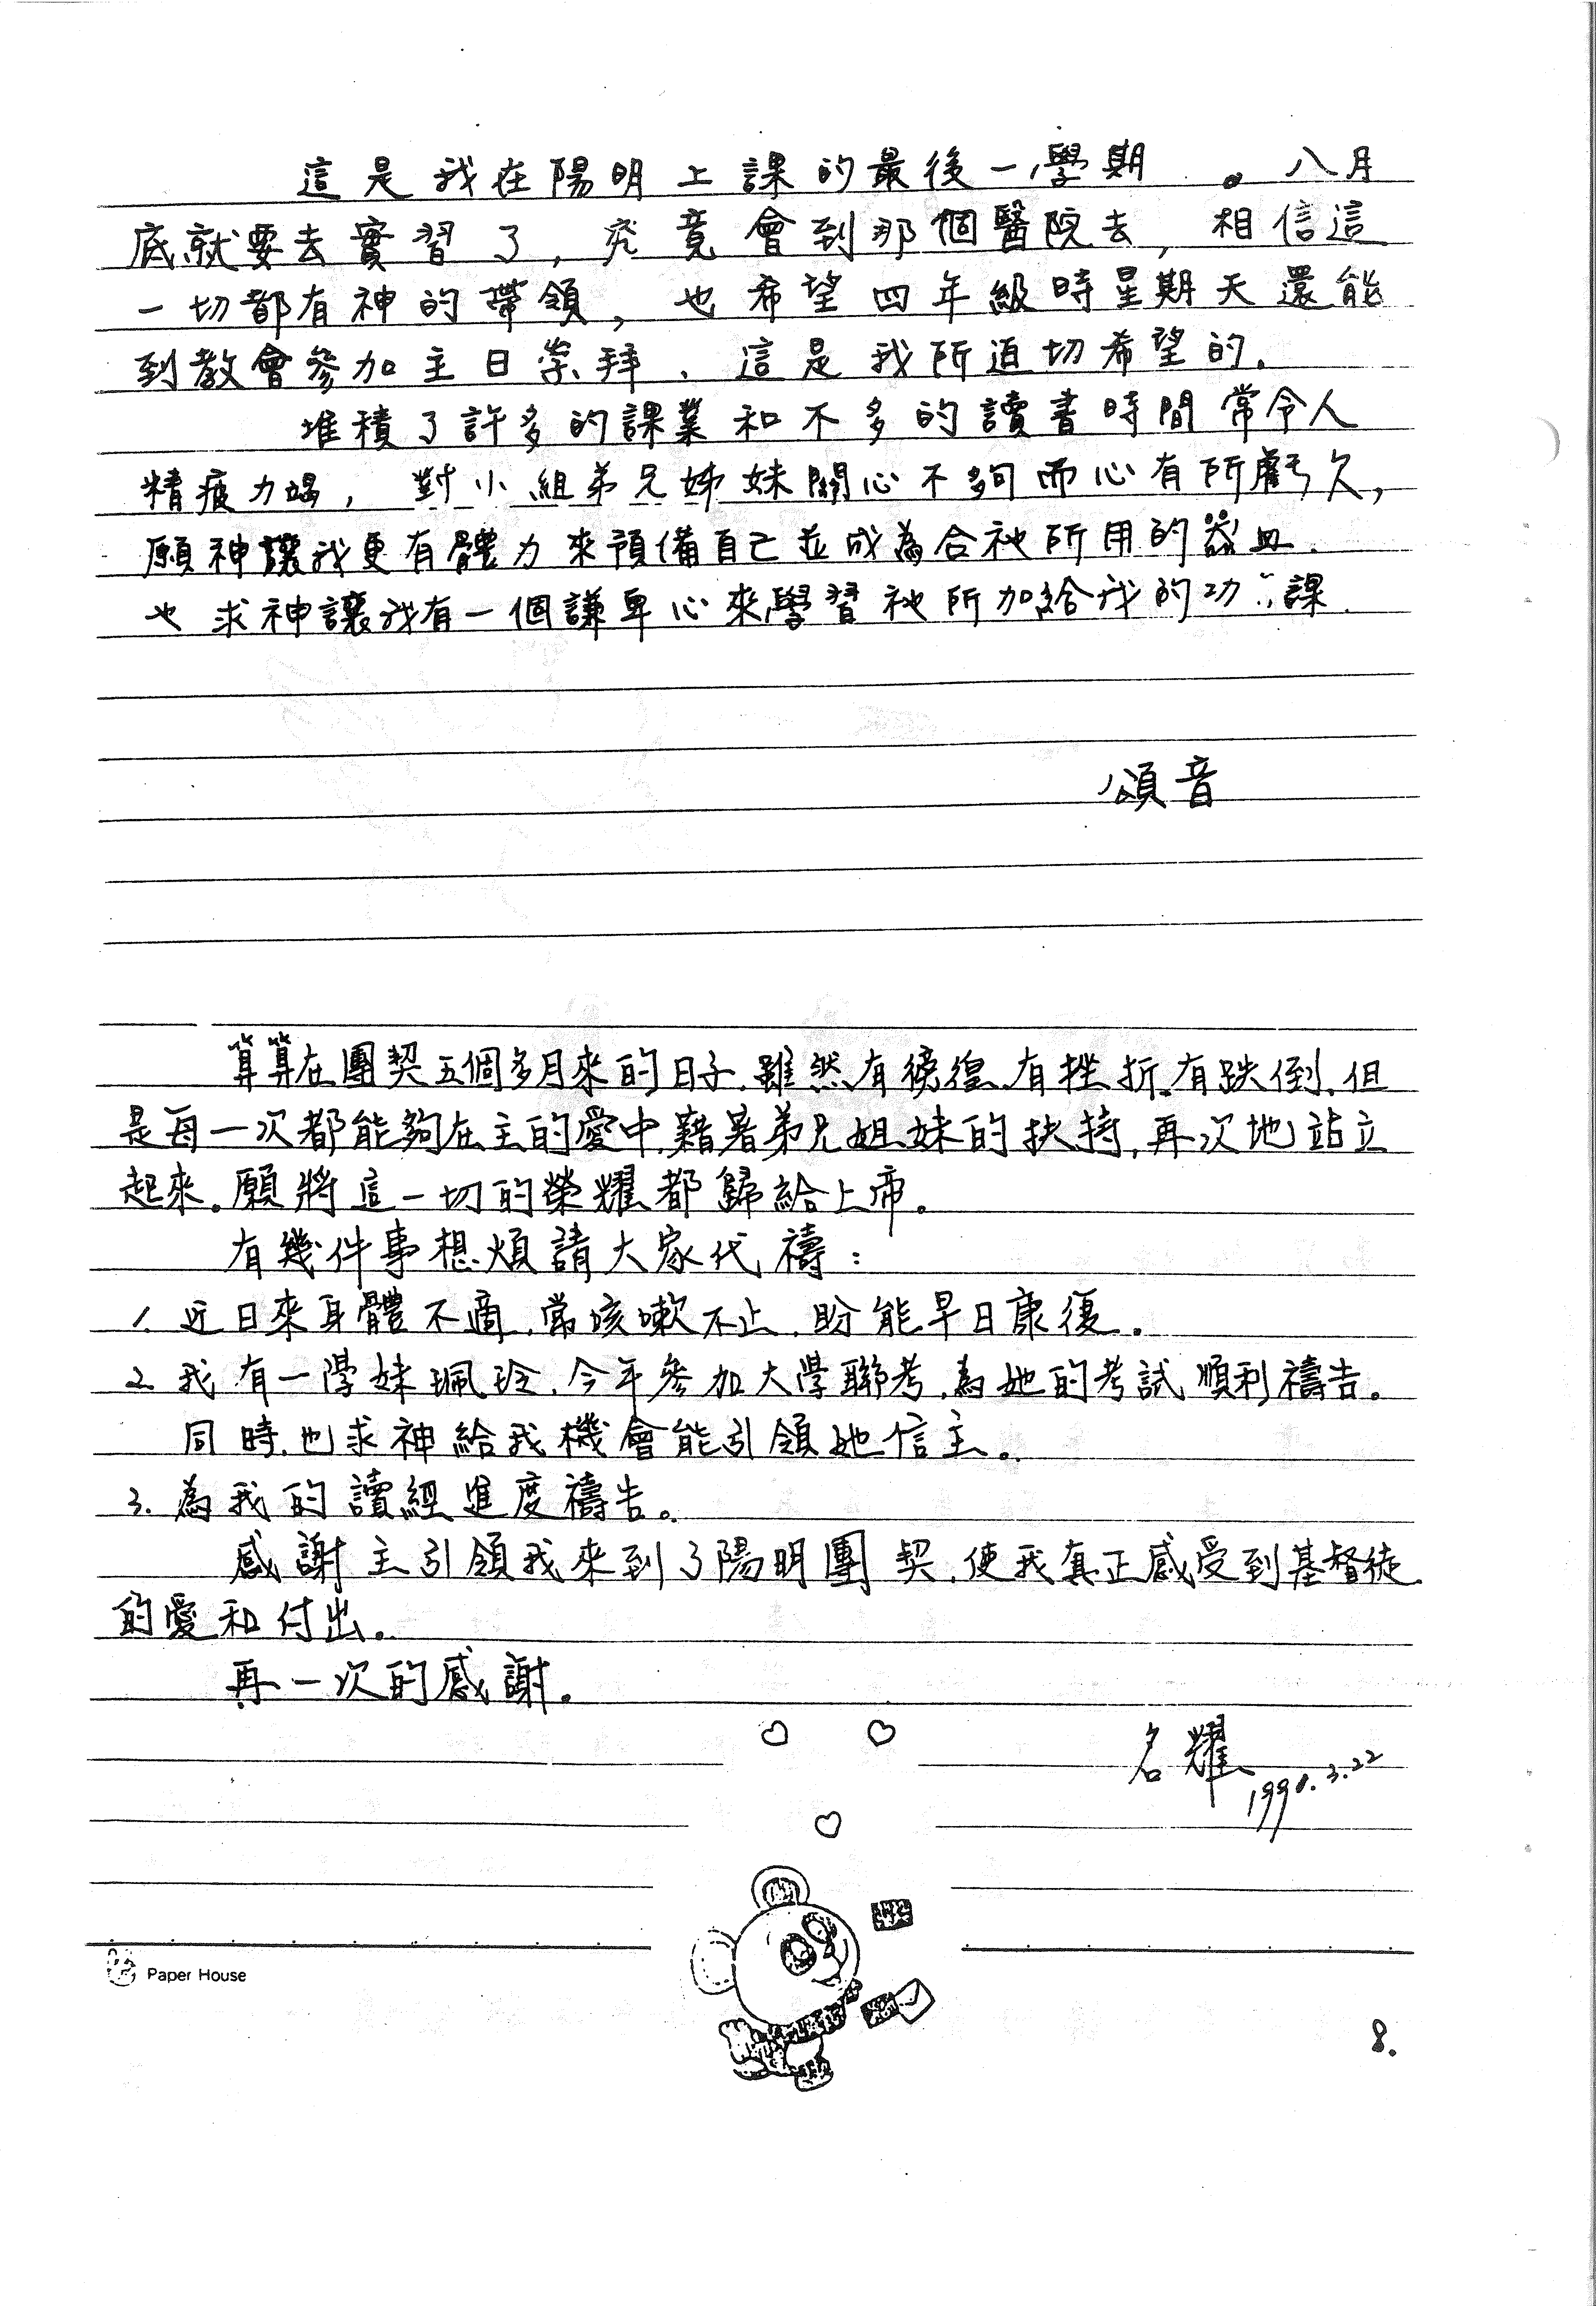 這是我在陽明上課的最後一學期。八月
底就要去實習了，究竟會到那個醫院去，相信這
一切都有神的帶領，也希望四年級時星期天還能
到教會參加主日崇拜、這是我所迫切希望的.
堆積了許多的課業和不多的讀書時間常令人
精疲力竭，對小組弟兄姊妹關心不夠而心有所虧欠，
願神讓我更有體力來預備自己並成為合祂所用的器皿.
也求神讓我有一個謙卑心來學習祂所加給我的功課.
頌音
算算在團契五個多月來的日子.雖然有徬徨.有挫折.有跌倒.但
是每一次都能夠在主的愛中.藉著弟兄姐妹的扶持.再次地站立
起來。願將這一切的榮耀都歸給上帝。
有幾件事想煩請大家代禱：
1. 近日來身體不適.常咳嗽不止.盼能早日康復。
2. 我有一學妹珮玲.今年參加大學聯考.為她的考試順利禱告。
同時.也求神給我機會能引領她信主。
3. 為我的讀經進度禱告。
感謝主引領我來到了陽明團契.使我真正感受到基督徒
的愛和付出。
再一次的感謝。
名耀
1990.3.22
Paper House
8.